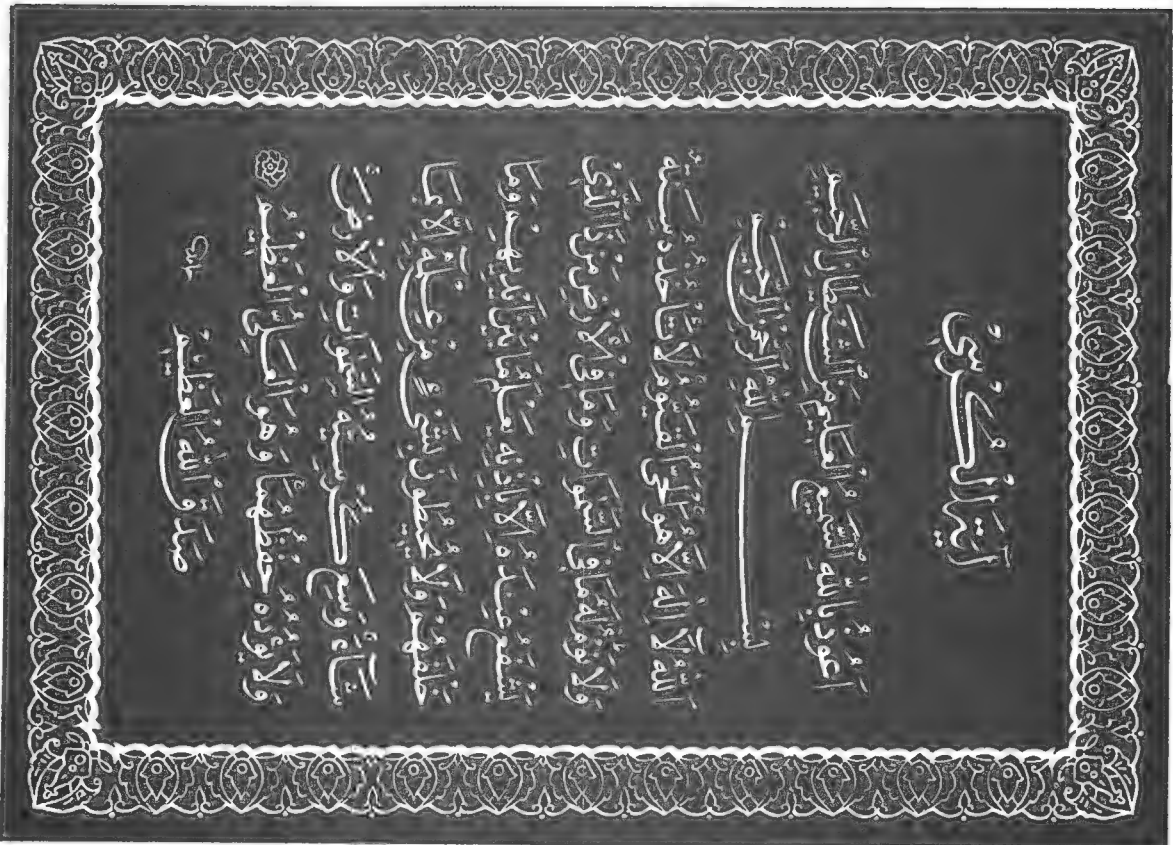 آية الكُرْسِيّ
اَعُوْذُ بِاللّٰهِ السَّمِيْعِ الْعَلِيْمِ مِنَ الشَّيْطَانِ الرَّجِيْمِ
بِسْمِ اللّٰهِ الرَّحْمٰنِ الرَّحِيْمِ
اَللّٰهُ لَآ اِلٰهَ اِلَّا هُوَ الْحَيُّ الْقَيُّوْمُ لَا تَاْخُذُهُ سِنَةٌ
وَلَا نَوْمٌ لَهُ مَا فِى السَّمٰوَاتِ وَمَا فِى الْاَرْضِ مَنْ ذَا الَّذِىْ
يَشْفَعُ عِنْدَهُ اِلَّا بِاِذْنِهِ يَعْلَمُ مَا بَيْنَ اَيْدِيْهِمْ وَمَا
خَلْفَهُمْ وَلَا يُحِيْطُوْنَ بِشَيْءٍ مِنْ عِلْمِهِ اِلَّا بِمَا
شَآءَ وَسِعَ كُرْسِيُّهُ السَّمٰوَاتِ وَالْاَرْضَ
وَلَا يَؤُدُهُ حِفْظُهُمَا وَهُوَ الْعَلِىُّ الْعَظِيْمُ
صَدَقَ اللّٰهُ الْعَظِيْمُ